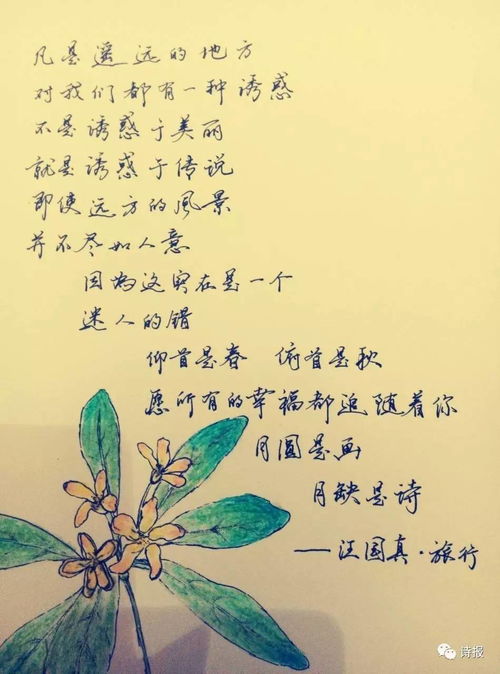 凡是遥远的地方
对我们都有一种诱惑
不是诱惑于美丽
就是诱惑于传说
即使远方的風景
并不尽如人意
因为这实在是一个
迷人的错
仰首是春 俯首是秋
愿所有的幸福都追随着你
月圆是画
月缺是诗
——汪国真·旅行
诗报